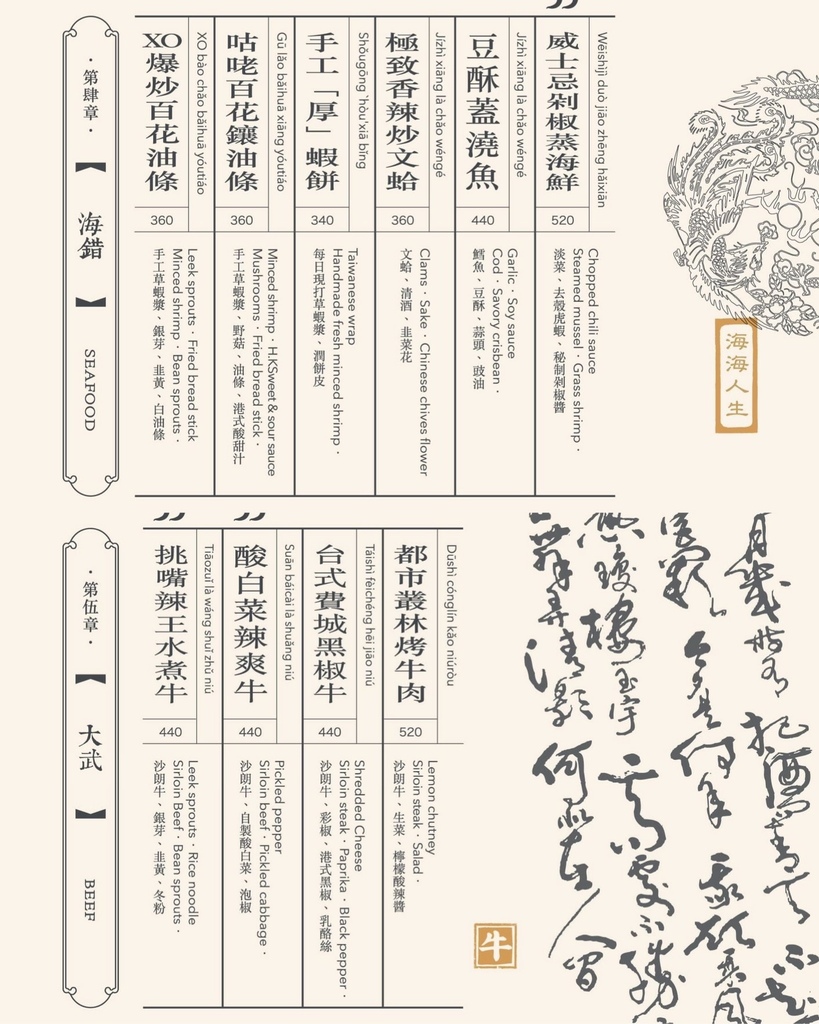 ·第肆章·
【海錯】
SEAFOOD
XO爆炒百花油條
XO bào chǎo bǎihuā yóutiáo
360
Leek sprouts · Fried bread stick
Minced shrimp · Bean sprouts ·
手工草蝦漿、銀芽、韭黃、白油條
咕咾百花鑲油條
Gū lǎo bǎihuā xiāng yóutiáo
360
Minced shrimp · H.KSweet & sour sauce
Mushrooms · Fried bread stick ·
手工草蝦漿、野菇、油條、港式酸甜汁
手工「厚」蝦餅
Shǒugōng 'hòu'xiā bǐng
340
Taiwanese wrap
Handmade fresh minced shrimp ·
每日現打草蝦漿、潤餅皮
極致香辣炒文蛤
Jízhì xiāng là chǎo wéngé
360
Clams · Sake · Chinese chives flower
文蛤、清酒、韭菜花
豆酥蓋澆魚
Jízhì xiāng là chǎo wéngé
440
Garlic · Soy sauce
Cod · Savory crisbean ·
鱈魚、豆酥、蒜頭、豉油
威士忌剁椒蒸海鮮
Wēishìjì duò jiāo zhēng hǎixiān
520
Chopped chili sauce
Steamed mussel · Grass shrimp ·
淡菜、去殼虎蝦、秘制剁椒醬
海海人生
·第伍章·
【大武】
BEEF
挑嘴辣王水煮牛
Tiāozuǐ là wáng shuǐ zhǔ niú
440
Leek sprouts · Rice noodle
Sirloin Beef · Bean sprouts ·
沙朗牛、銀芽、韭黃、冬粉
酸白菜辣爽牛
Suān báicài là shuǎng niú
440
Pickled pepper
Sirloin beef · Pickled cabbage ·
沙朗牛、自製酸白菜、泡椒
台式費城黑椒牛
Táishì fèichéng hēi jiāo niú
440
Shredded Cheese
Sirloin steak · Paprika · Black pepper ·
沙朗牛、彩椒、港式黑椒、乳酪絲
都市叢林烤牛肉
Dūshì cónglín kǎo niúròu
520
Lemon chutney
Sirloin steak · Salad ·
沙朗牛、生菜、檸檬酸辣醬
牛
月幾時有把酒問青天不知
宮闕今夕是何年我欲乘風
恐瓊樓玉宇高處不勝
舞弄清影何似在人間